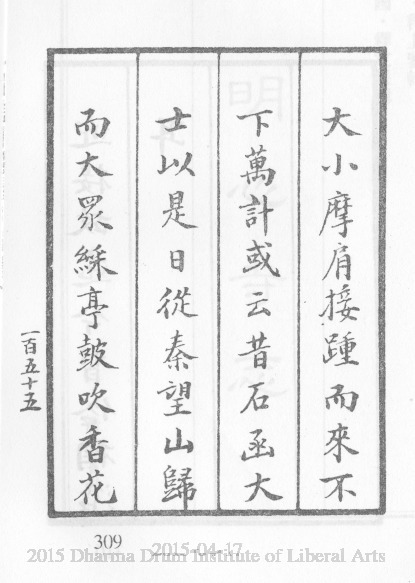 大小摩肩接踵而來不
下萬計或云昔石函大
士以是日從秦望山歸
而大眾綵亭鼓吹香花
一百五十五
309
2015-04-17
2015 Dharma Drum Institute of Liberal Arts